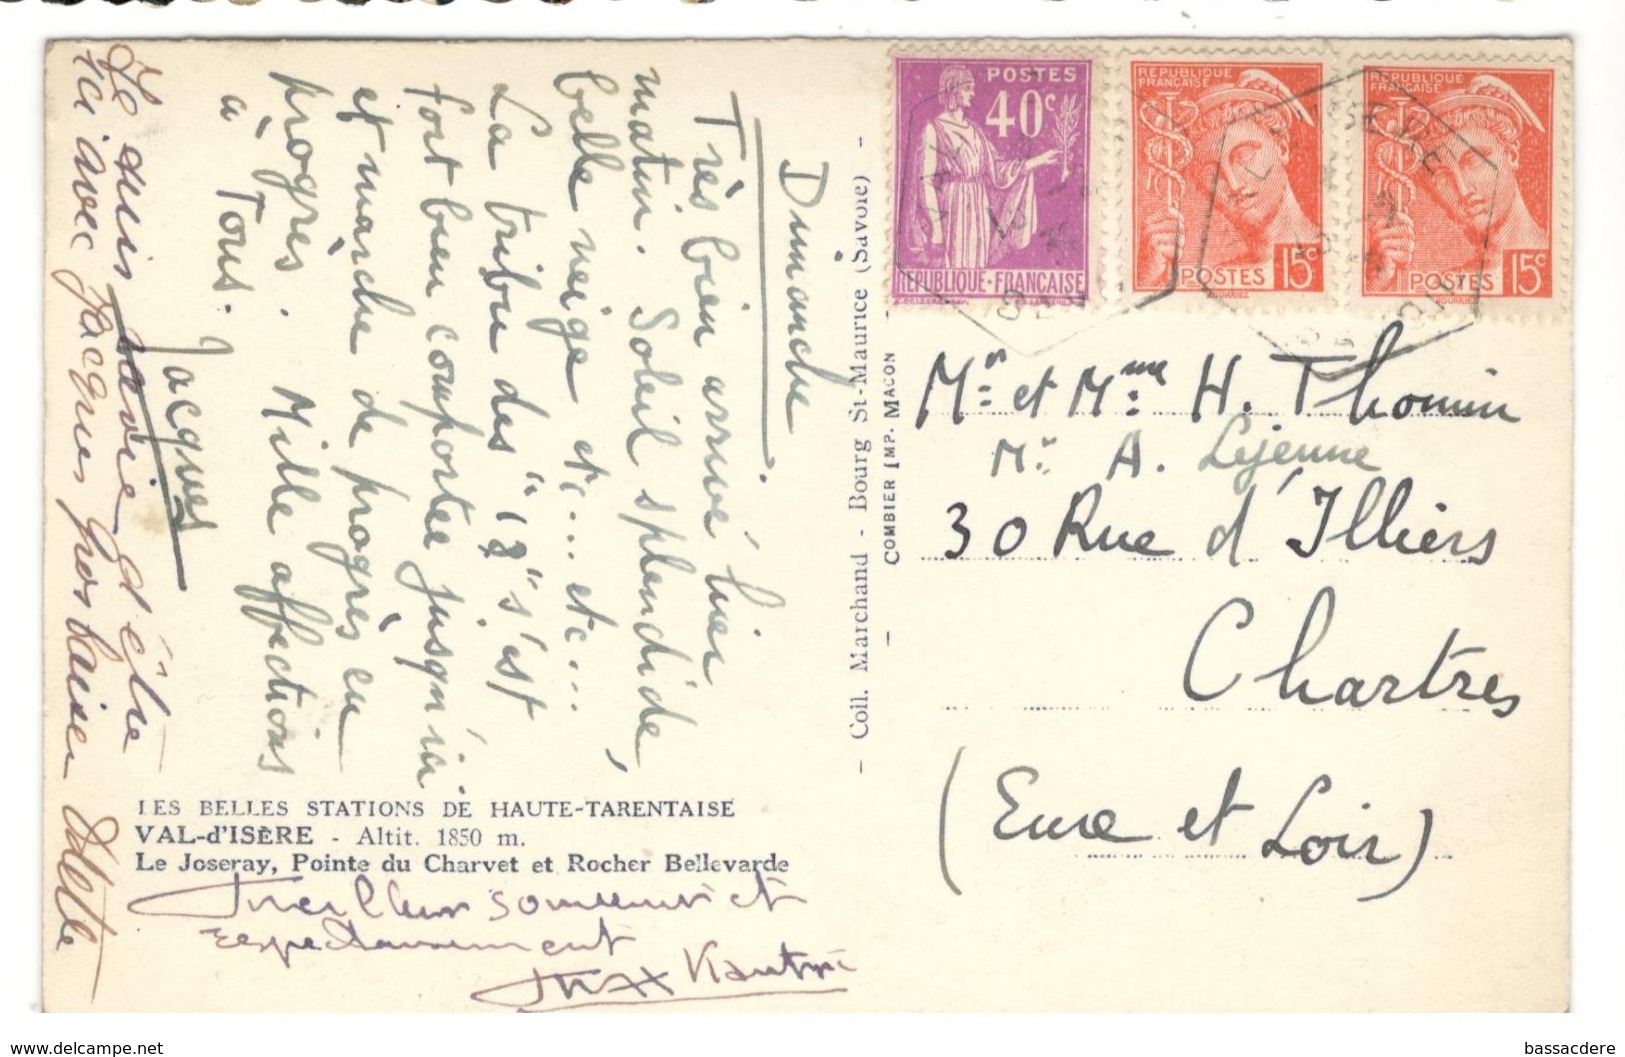 Dimanche
Très bien arrivé hier
matin. Soleil splendide,
belle neige etc... etc...
La tribu des "18" s'est
fort bien comportée jusqu'ici
et marche de progrès en
progrès. Mille affections
à Tous.
Jacques
Je suis ravie d'être
ici avec Jacques, gros baiser Odette
LES BELLES STATIONS DE HAUTE-TARENTAISE
VAL-d'ISÈRE - Altit. 1850 m.
Le Joseray, Pointe du Charvet et Rocher Bellevarde
Meilleur souvenir et
respectueusement
Max
- Coll. Marchand - Bourg St-Maurice (Savoie) -
COMBIER IMP. MACON
POSTES
40c
REPUBLIQUE-FRANÇAISE
REPUBLIQUE
FRANÇAISE
POSTES 15c
REPUBLIQUE
FRANÇAISE
POSTES 15c
Mr et Mme H. Thomin
Mr A. Lejeune
30 Rue d'Illiers
Chartres
(Eure et Loir)
www.delcampe.net
bassacdere